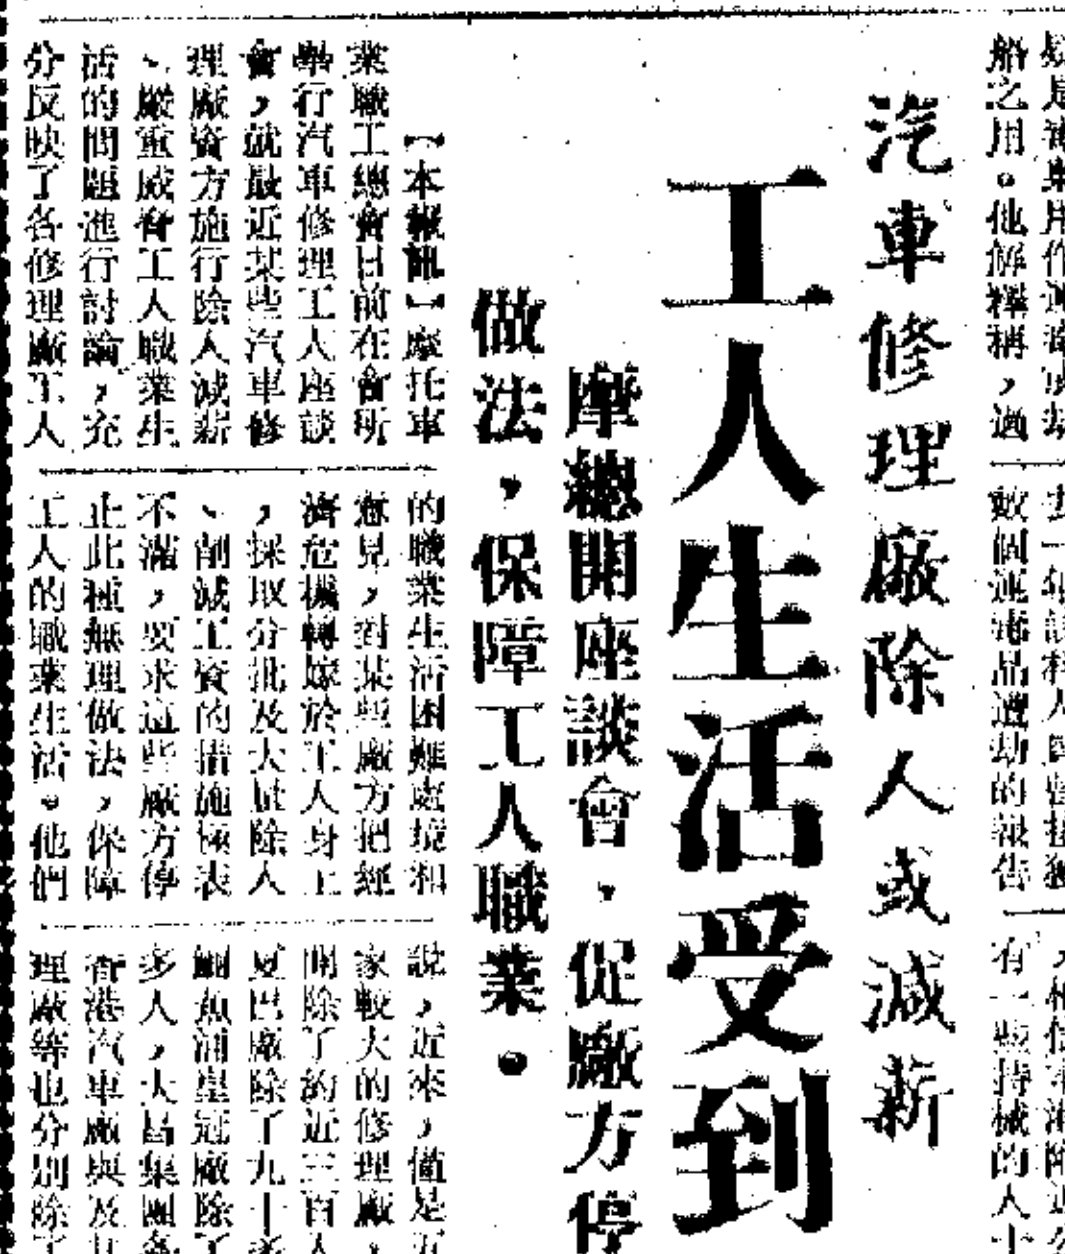 船之用。他解釋稱，過
數個運電品遭劫的報告
有一些持械的人士
汽車修理廠除人或減薪
工人生活受到
摩總開座談會，促廠方停
做法，保障工人職業。
【本報訊】摩托車
業職工總會日前在會所
舉行汽車修理工人座談
會，就最近某些汽車修
理廠資方施行除人減薪
、嚴重威脅工人職業生
活的問題進行討論，充
分反映了各修理廠工人
的職業生活困難處境和
意見，對某些廠方把經
濟危機轉嫁於工人身上
，採取分批及大量除人
、削減工資的措施極表
不滿，要求這些廠方停
止此種無理做法，保障
工人的職業生活。他們
說，近來，僅是五
家較大的修理廠，
開除了約近三百人
夏巴廠除了九十多
鰂魚涌皇冠廠除了
多人，大昌集團
香港汽車廠與及
理廠等也分別除了